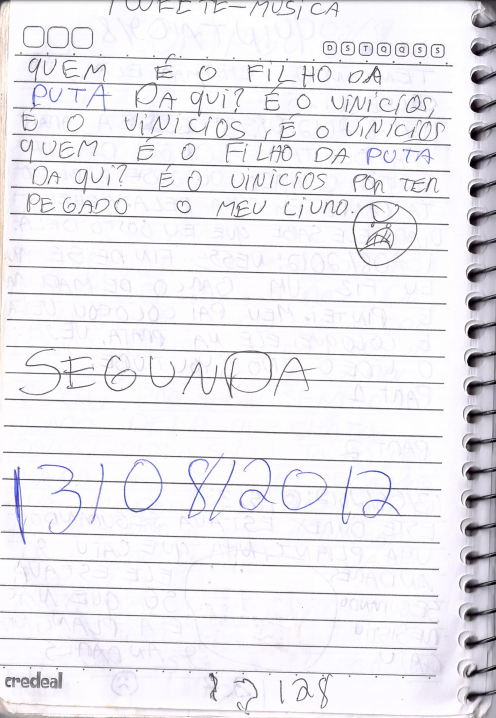 TWEETE-MUSICA
D S T Q Q S S
QUEM É O FILHO DA
PUTA DA QUI? É O VINICIOS,
É O VINICIOS É O VINICIOS
QUEM É O FILHO DA PUTA
DA QUI? É O VINICIOS POR TER
PEGADO O MEU LIVRO.
SEGUNDA
13/08/2012
credeal